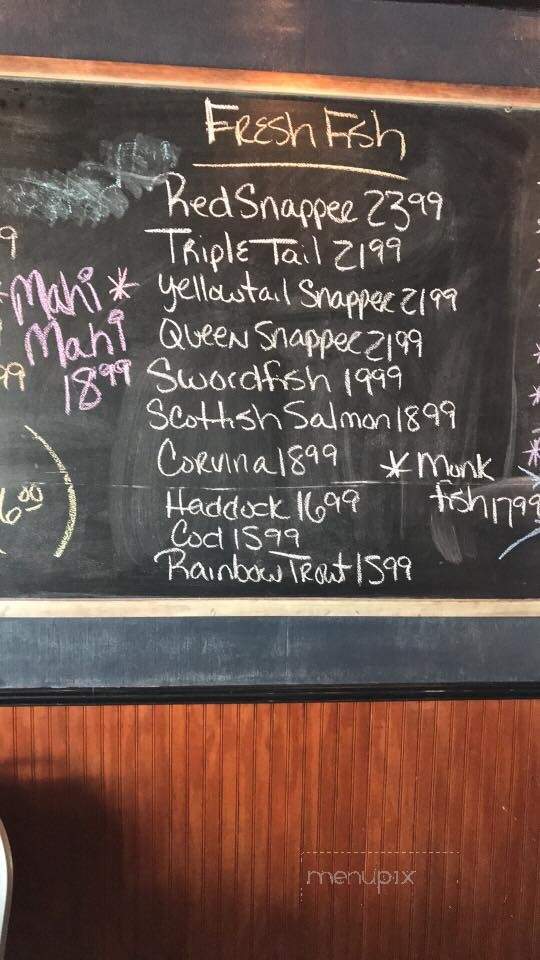 Fresh Fish
Red Snapper 2399
Triple Tail 2199
Yellowtail Snapper 2199
Queen Snapper 2199
Swordfish 1999
Scottish Salmon 1899
Corvina 1899
Haddock 1699
Cod 1599
Rainbow Trout 1599
*Mahi*
Mahi
18⁹⁹
*Monk
fish 1799
9
99
6⁰⁰
menupix